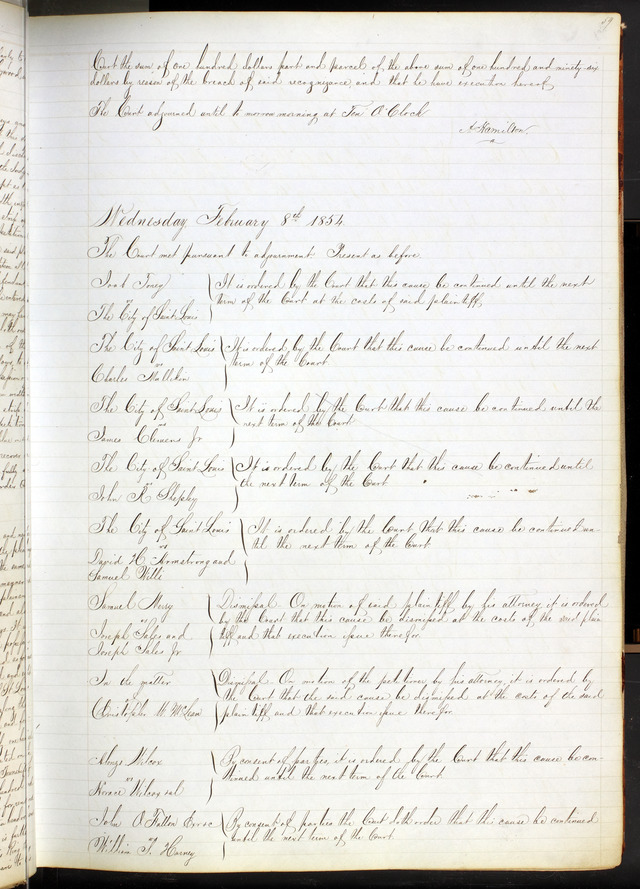 Court the sum of one hundred dollars part and parcel of the above sum of one hundred and ninety-six
dollars by reason of the breach of said recognizance and that he have execution hereof
The Court adjourned until to morrow morning at Ten O Clock
A Hamilton
Wednesday February 8th 1854
The Court met pursuant to adjournment Present as before
vs
The City of Saint Louis
It is ordered by the Court that this cause be continued until the next
term of the Court at the costs of said plaintiff
The City of Saint Louis
vs
Charles
It is ordered by the Court that this cause be continued until the next
term of the Court
The City of Saint Louis
vs
James Clemens Jr
It is ordered by the Court that this cause be continued until the
next term of the Court
The City of Saint Louis
vs
John R Shepley
It is ordered by the Court that this cause be continued until
the next term of the Court
The City of Saint Louis
vs
David H Armstrong and
Samuel
It is ordered by the Court that this cause be continued un-
til the next term of the Court
Samuel
Joseph Sales and
Joseph Sales Jr
Dismissal On motion of said plaintiff by his attorney it is ordered
by the Court that this cause be dismissed at the costs of the said plain
tiff and that execution issue therefor
In the matter
Christopher M McLean
Dismissal On motion of the petitioner by his attorney it is ordered by
the Court that the said cause be dismissed at the costs of the said
plaintiff and that execution issue therefor
Wilcox
vs
Wilcox et al
By consent of parties it is ordered by the Court that this cause be con-
tinued until the next term of the Court
John O Fallon
William F. Harney
By consent of parties the Court doth order that this cause be continued
until the next term of the Court